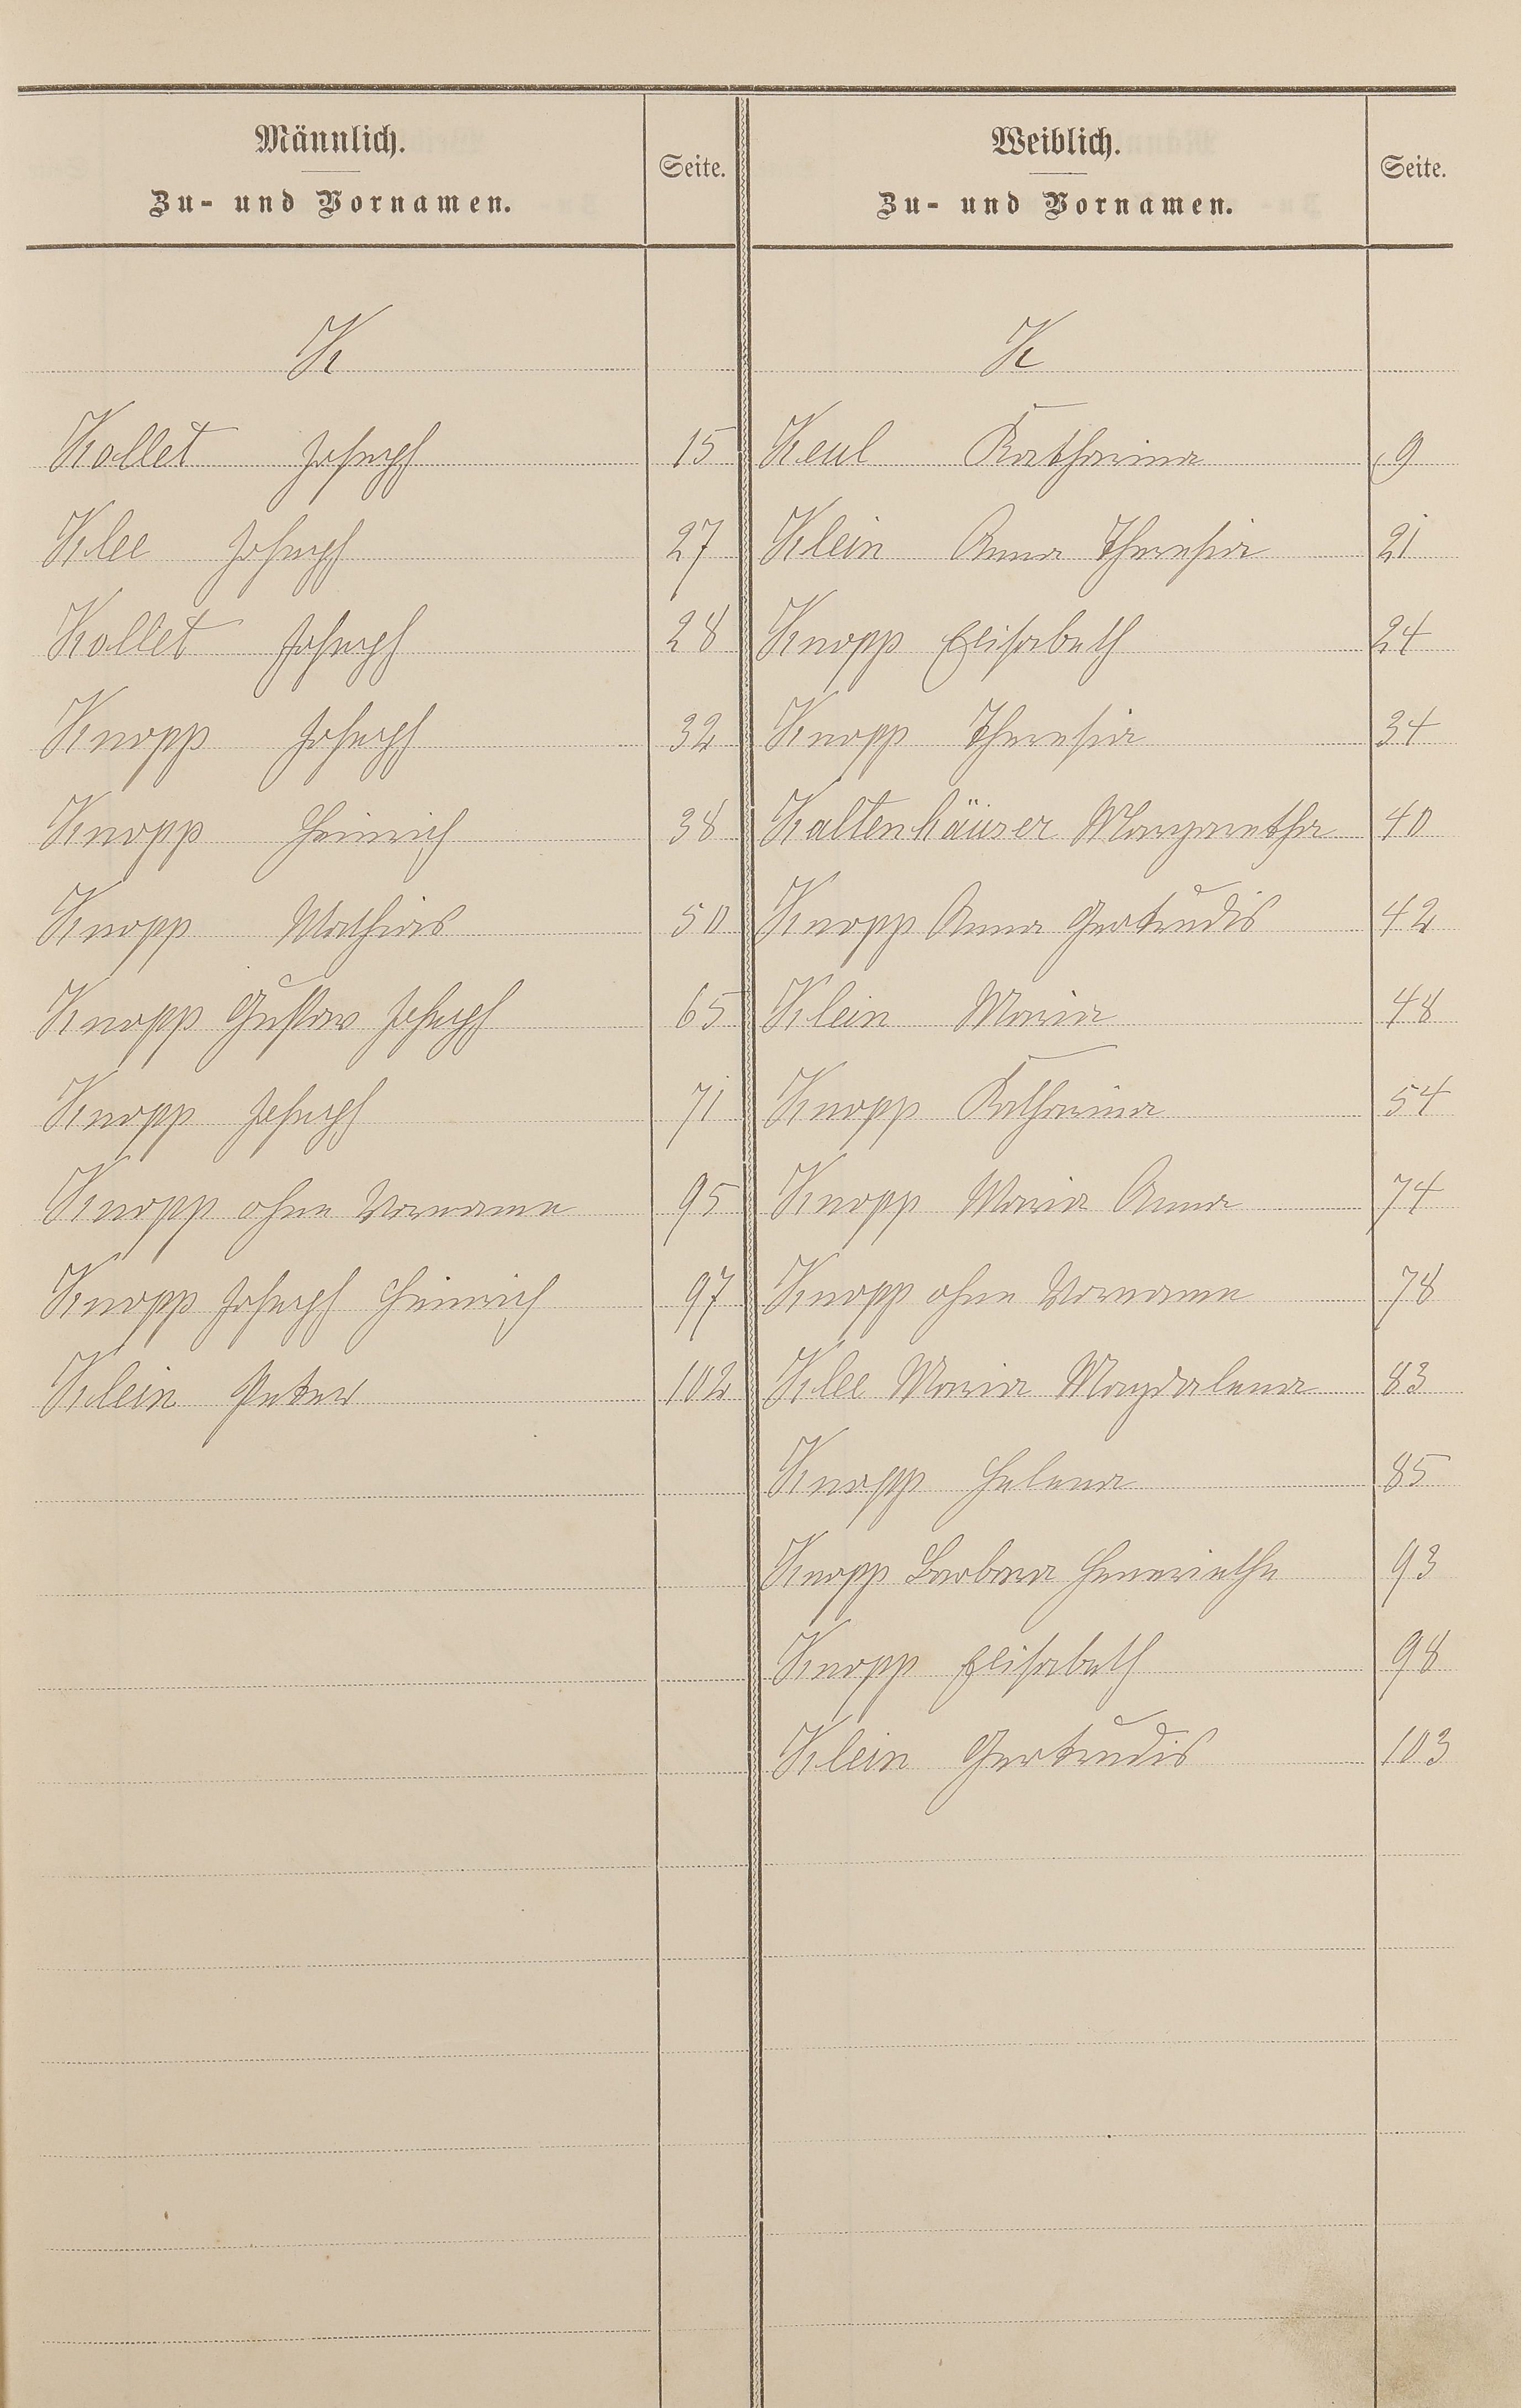 Männlich.
Zu- und Vornamen.
Seite.
Weiblich.
Zu- und Vornamen.
Seite.
K
K
Kollet Joseph 15 Keul Katharina 9
Klee Joseph 27 Klein Anna Theresia 21
Kollet Joseph 28 Knopp Elisabeth 24
Knopp Joseph 32 Knopp Theresia 34
Knopp Heinrich 38 Kaltenhäuser Margaretha 40
Knopp Mathias 50 Knopp Anna Gertrudis 42
Knopp Gustav Joseph 65 Klein Maria 48
Knopp Joseph 71 Knopp Katharina 54
Knopp ohne Vorname 95 Knopp Maria Anna 74
Knopp Joseph Heinrich 97 Knopp ohne Vorname 78
Klein Peter 102 Klee Maria Magdalena 83
Knopp Helena 85
Knopp Barbara 93
Knopp Elisabeth 98
Klein Gertrudis 103